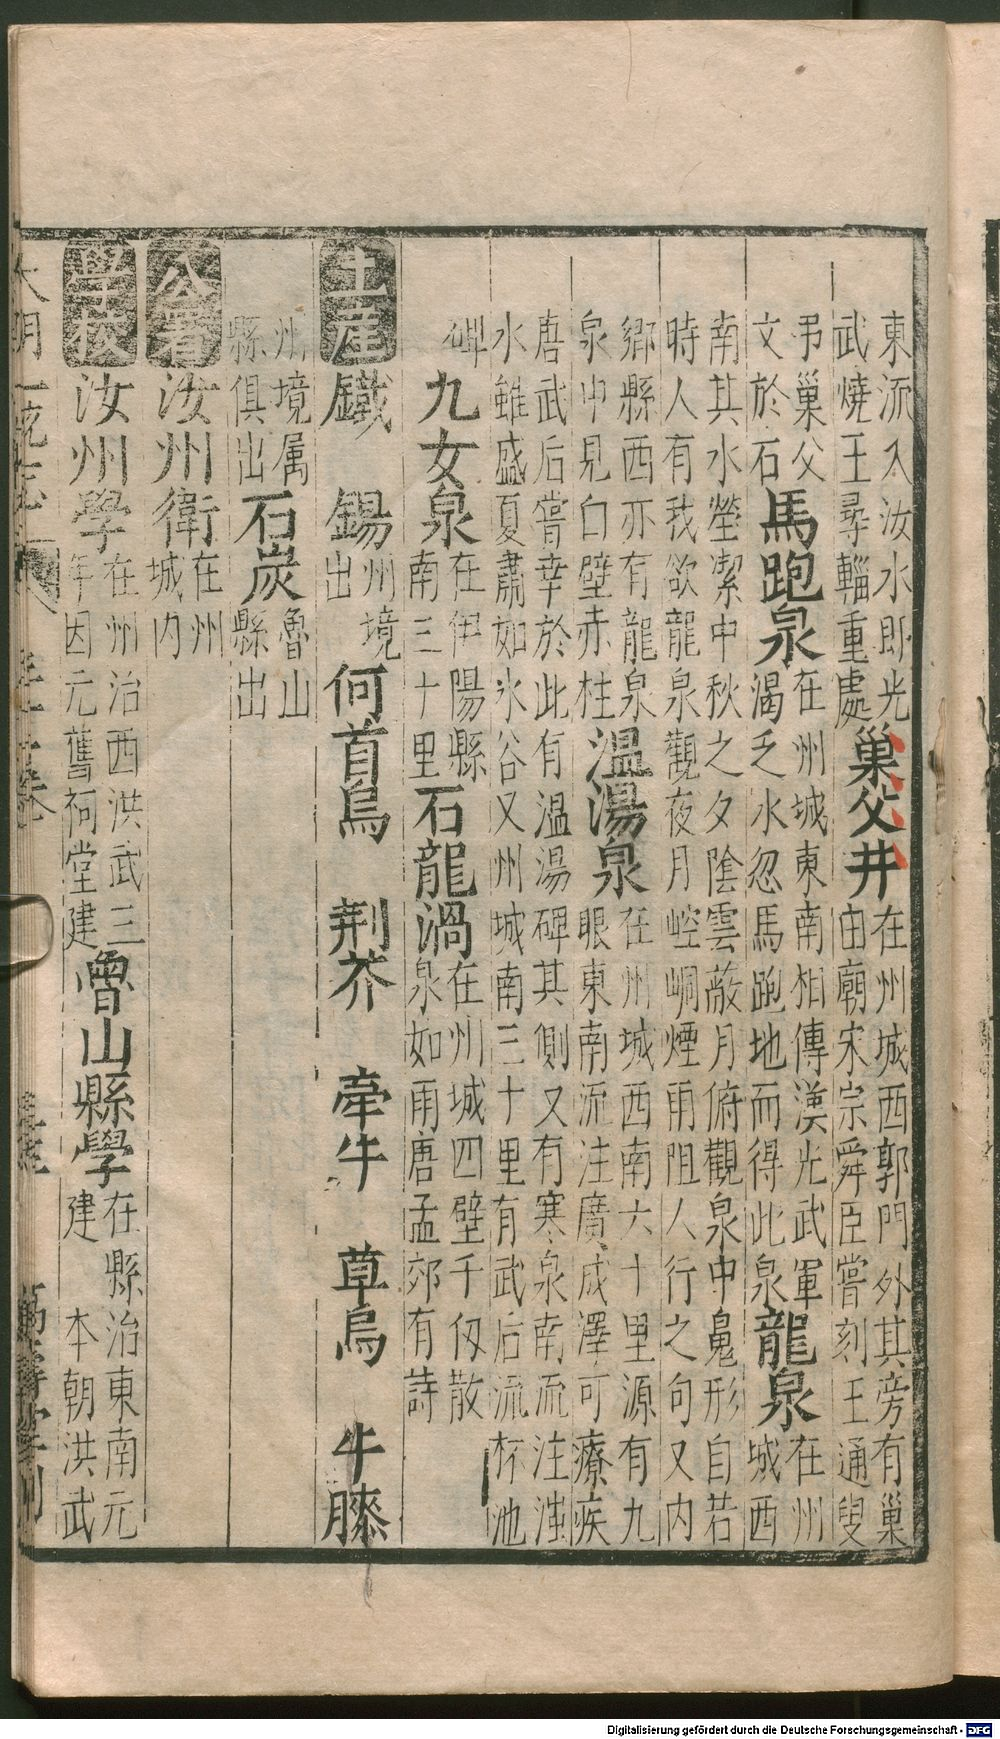 東流入汝水即光
武燒王尋輜重處
巢父井
在州城西郭門外其旁有巢
由廟宋宗舜臣嘗刻王通叟
弔巢父
文於石
馬跑泉
在州城東南相傳漢光武軍
渴乏水忽馬跑地而得此泉
龍泉
在州
城西
南其水瑩潔中秋之夕陰雲蔽月俯觀泉中鳧形自若
時人有我欲龍泉觀夜月崆峒煙雨阻人行之句又内
鄉縣西亦有龍泉
泉中見白壁赤柱
溫湯泉
在州城西南六十里源有九
眼東南流注廣成澤可療疾
唐武后嘗幸於此有溫湯碑其側又有寒泉南流注滍
水雖盛夏肅如氷谷又州城南三十里有武后流杯池
碑
九女泉
在伊陽縣
南三十里
石龍渦
在州城四壁千仭散
泉如雨唐孟郊有詩
土産
鐵
錫
州境
出
何首烏
荆芥
牽牛
草烏
牛膝
州境属
縣俱出
石炭
魯山
縣出
公署
汝州衛
在州
城内
學校
汝州學
在州治西洪武三
年因元舊祠堂建
魯山縣學
在縣治東南元
建 本朝洪武
大明一統志
Digitalisierung gefördert durch die Deutsche Forschungsgemeinschaft - DFG